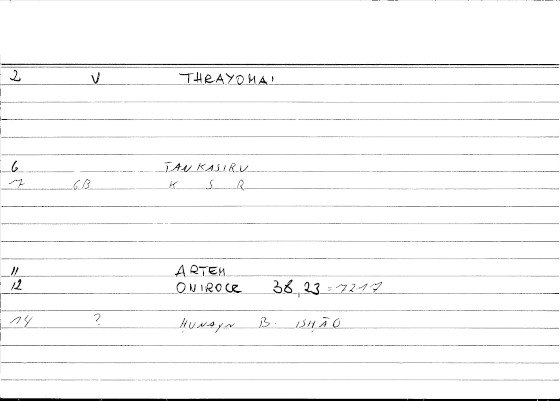 2 V THRAYOMAI
6 TANKASIRU
7 GB K S R
11 ARTEM
12 ONIROCR 38,23 = 1217
14 ? ḤUNAYN B. ISḤĀQ